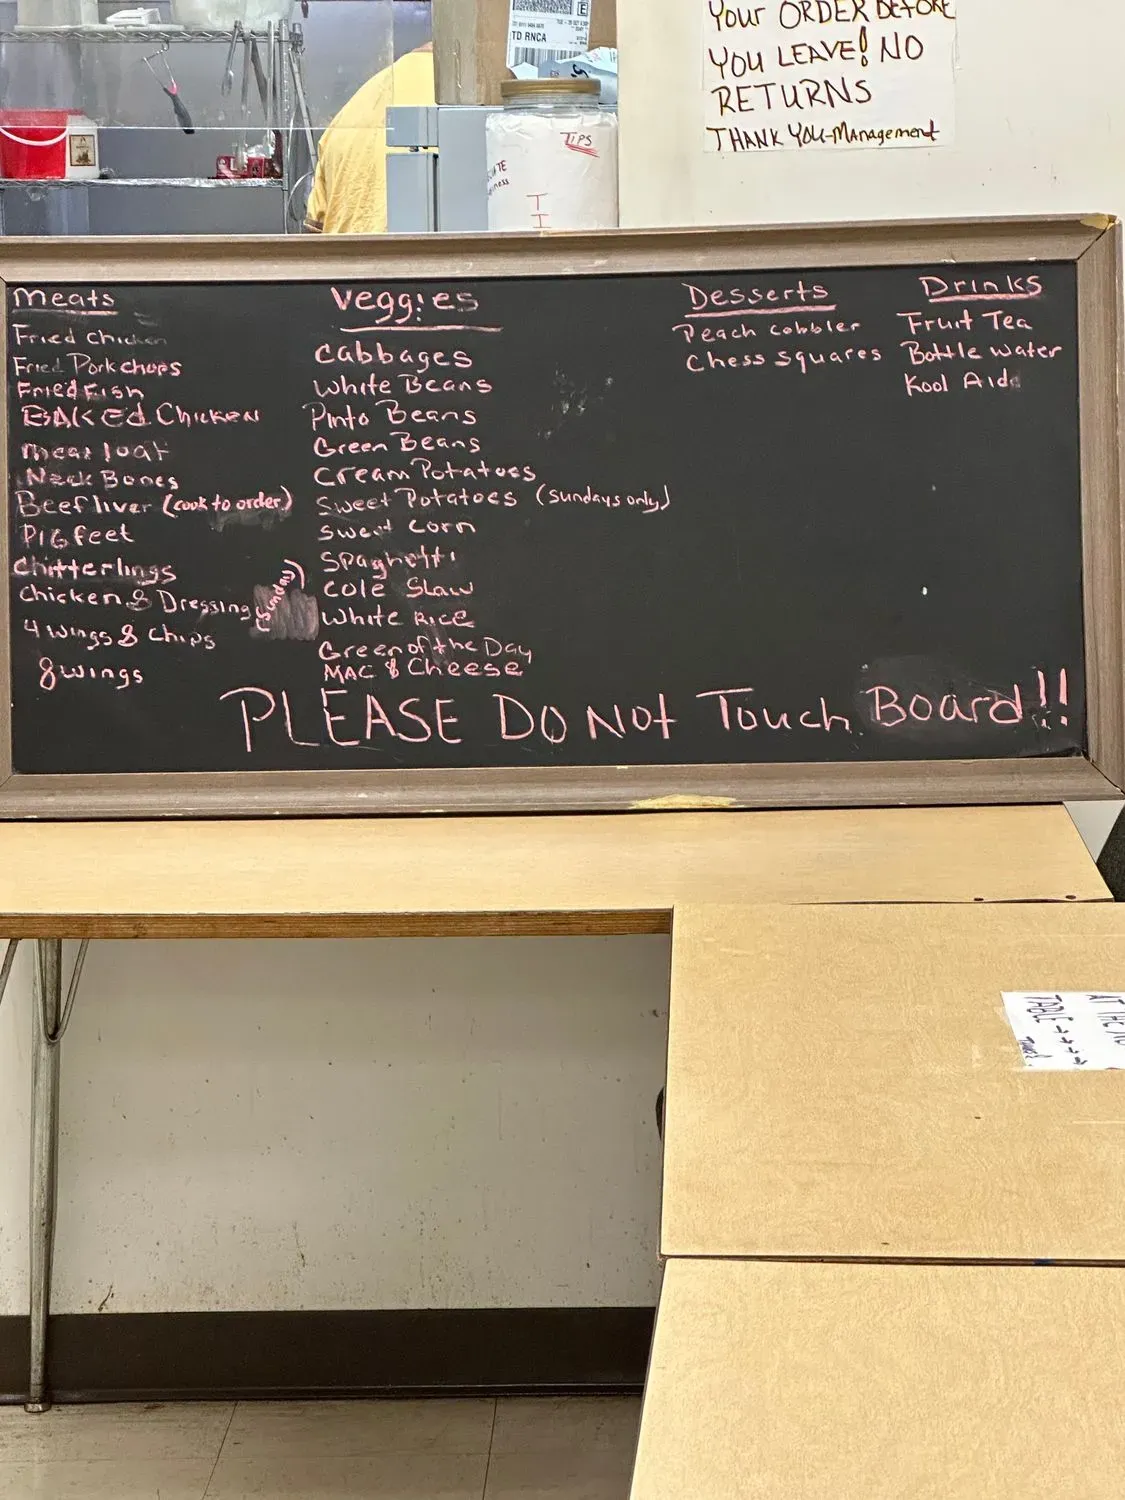 Your ORDER BEFORE
YOU LEAVE! NO
RETURNS
THANK YOU-Management
E
TD RNCA
TIPS
T
I
Meats
Fried chicken
Fried Porkchops
Fried Fish
BAKEd Chicken
meat loaf
Neck Bones
Beef liver (cook to order)
PIG feet
Chitterlings
Chicken & Dressing (Sunday)
4 wings & Chips
8 wings
Veggies
Cabbages
White Beans
Pinto Beans
Green Beans
Cream Potatoes
Sweet Potatoes (Sundays only)
Sweet Corn
Spaghetti
Cole Slaw
White Rice
Green of the Day
MAC & Cheese
Desserts
Peach Cobbler
Chess Squares
Drinks
Fruit Tea
Bottle Water
Kool Aid
PLEASE DO NOt Touch Board!!
AT THE
TABLE